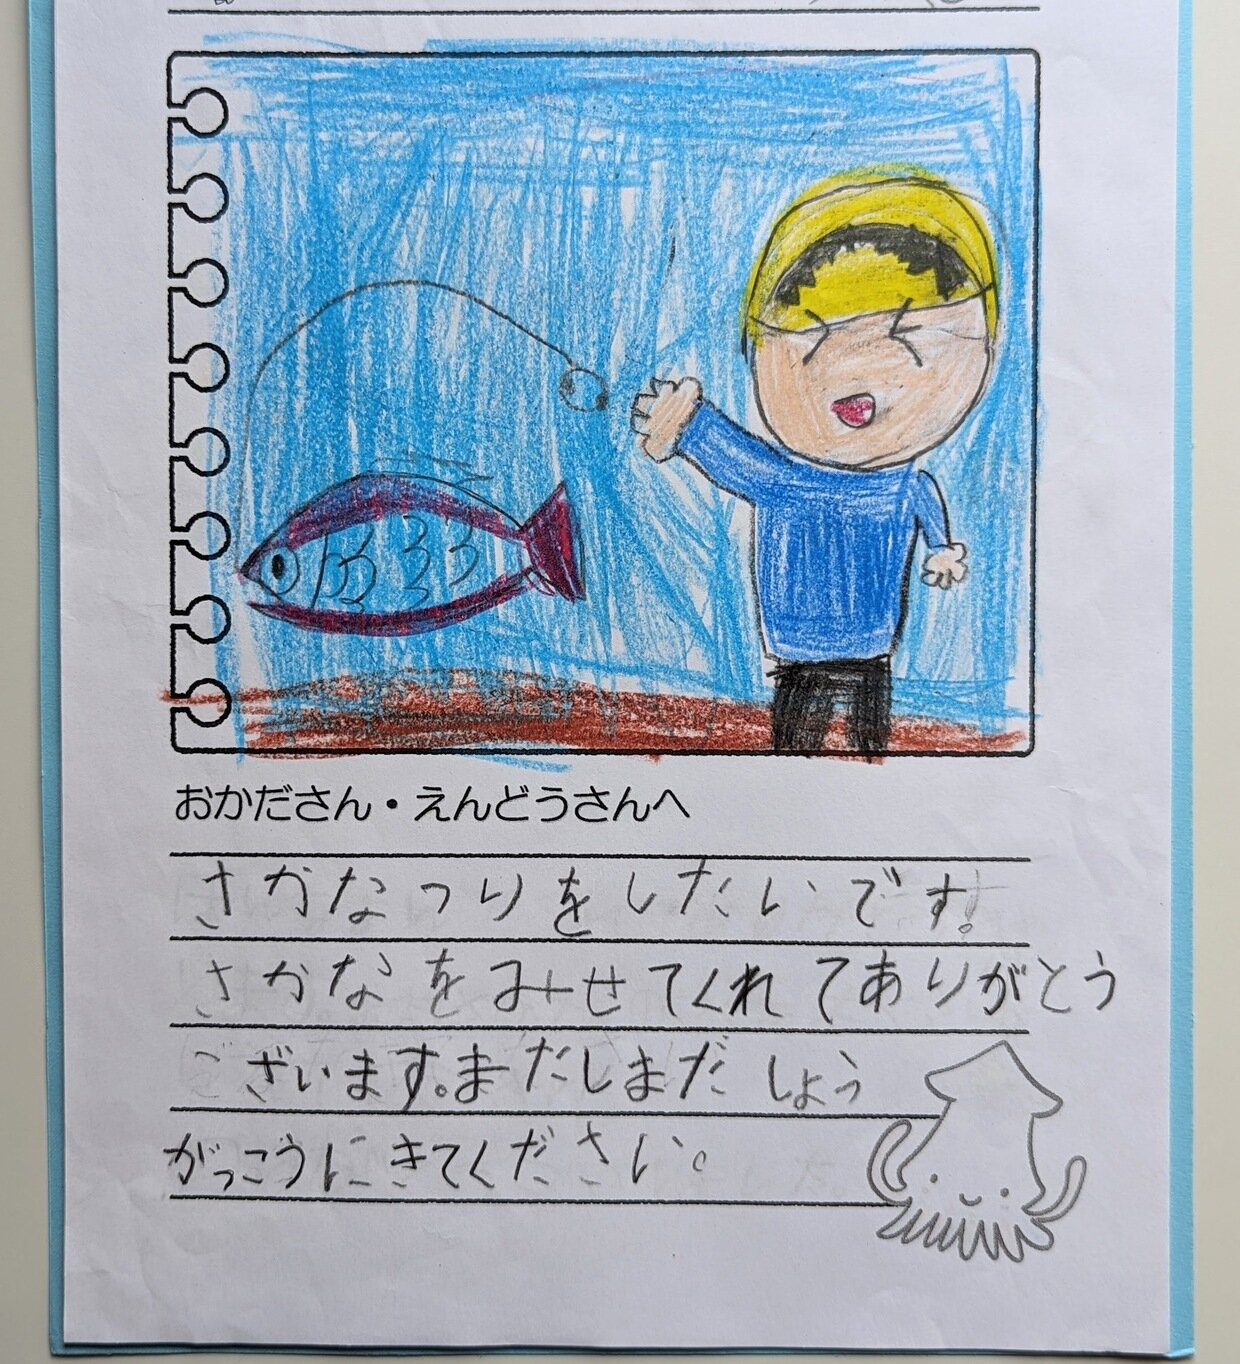 おかださん・えんどうさんへ
さかなつりをしたいです。
さかなをみせてくれてありがとう
ございます。まだしまだしょう
がっこうにきてください。